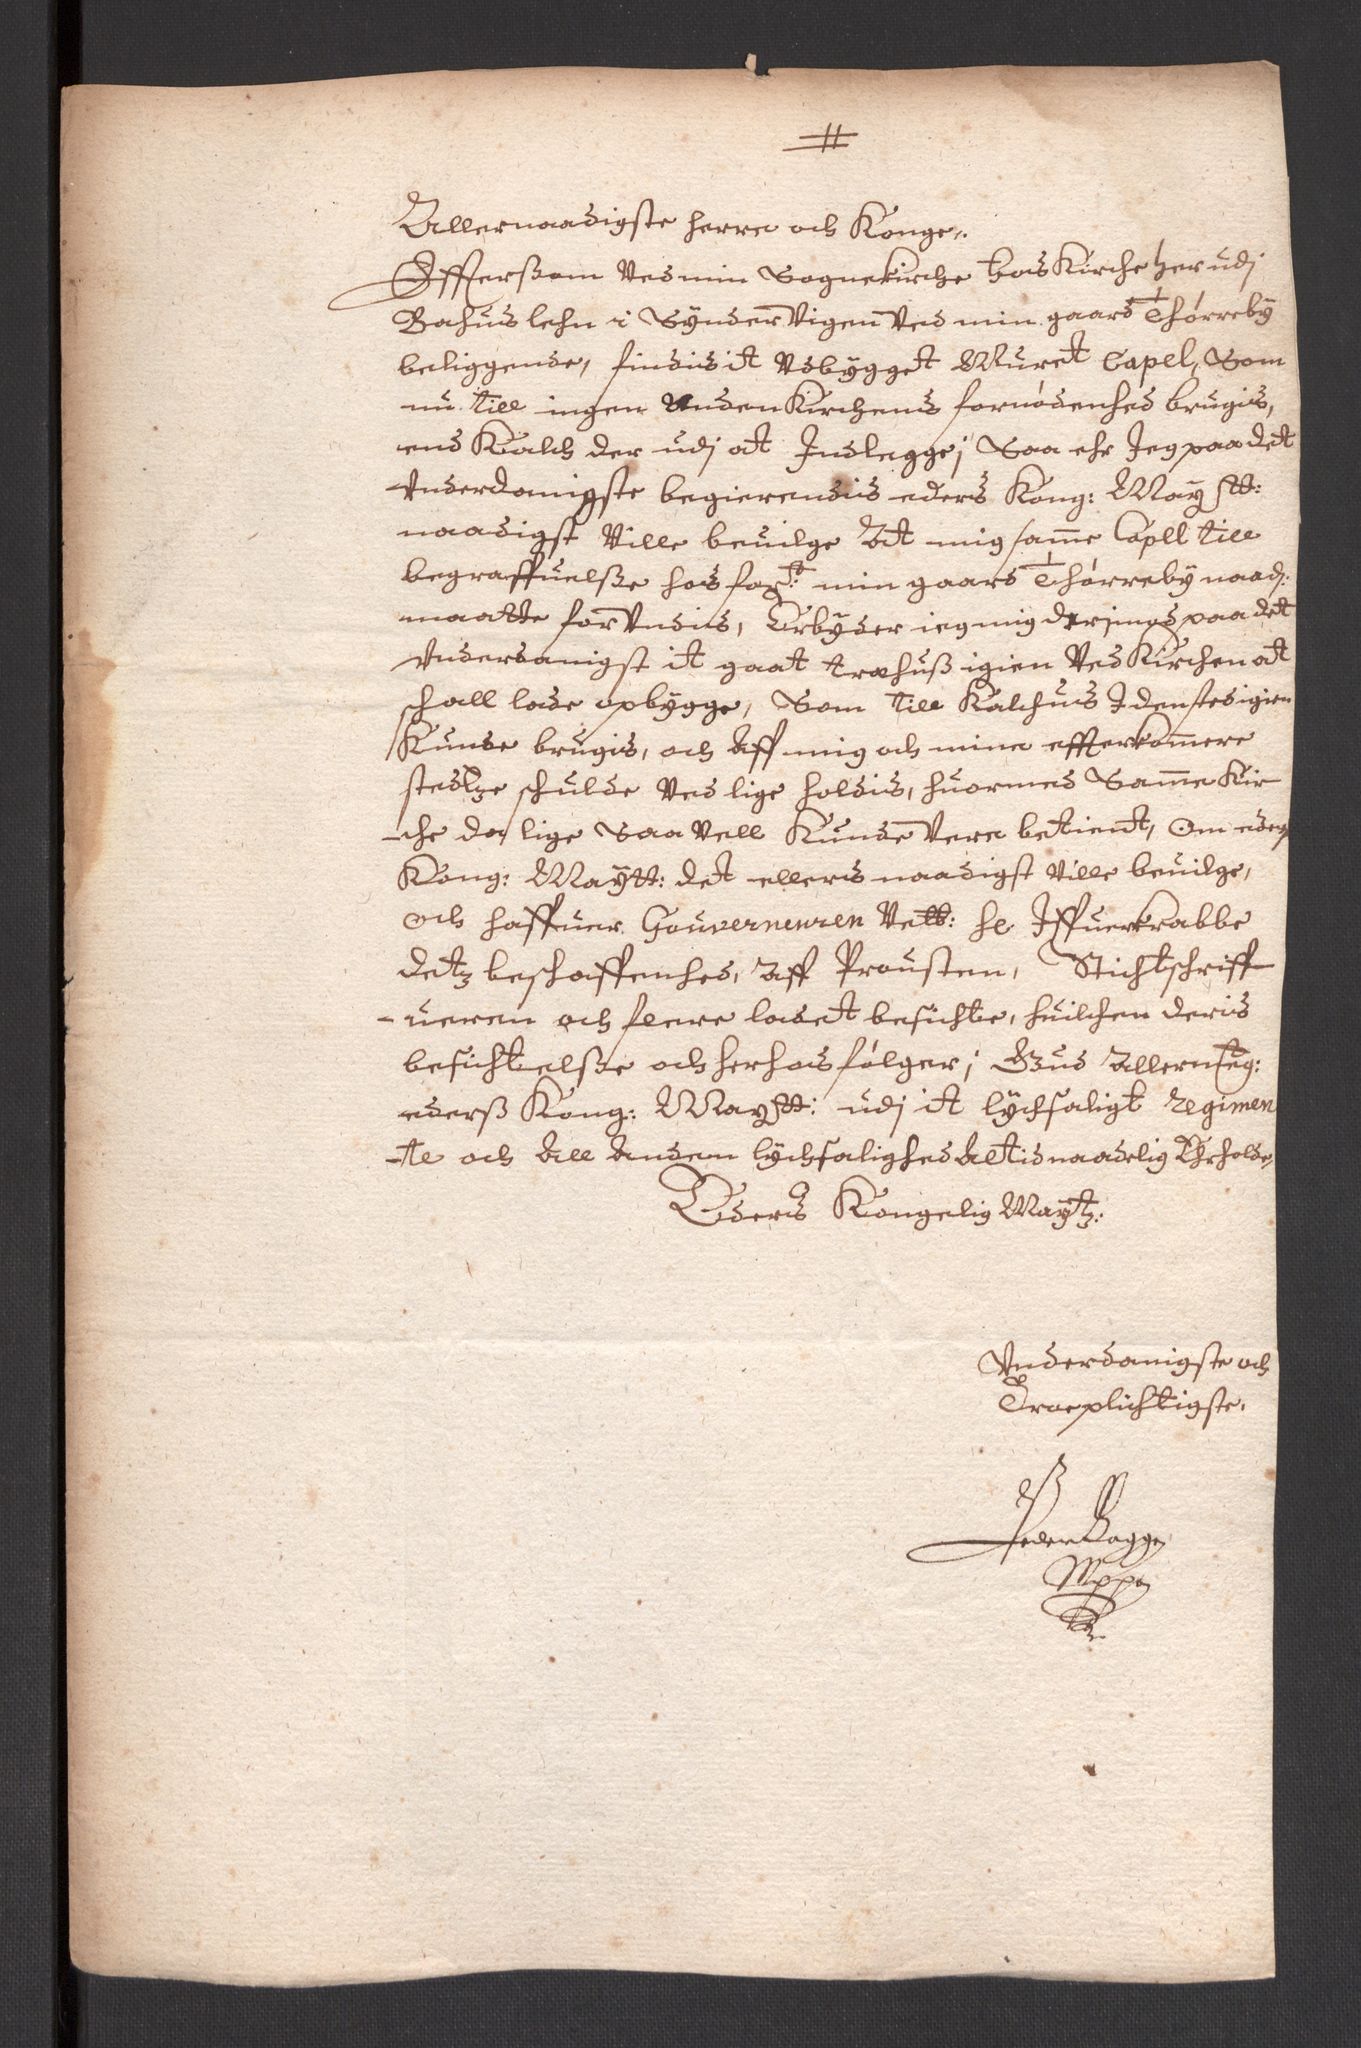 Allernaadigste herre och Konge,.
Effterßom Ved min Sognekirche boe Kirche her udj
Bahuus lehn i Synder Vigen Ved min gaard Thörreby
beliggende, findis it Vdbygget Muret Capel, Som
nu till ingen Anden Kirchens fornödenhed brugis,
end Kalch der udj at Indlegge; Saa ehr Jeg paa det
Vnderdanigste begierendis eders Kong: Maytt:
naadigst Ville beuilge At mig samme Capell till
begraffuelße hos for: min gaard Thörreby naad:
maatte forVndis, Erbyder ieg mig derimod paa det
Vnderdanigst it gaat træhuß igien Ved Kirchen at
schall lade opbygge, Som till Kalchuus I den sted igien
Kunde brugis, och Aff mig och mine effterkommere
stedtze schulde Ved lige holdis, huormed Samme Kir
-che da lige Saa Vell Kunde Vere betient, Om eders
Kong: Maytt: det ellers naadigst Ville beuilge,
och haffuer Gouverneuren Velb: he Iffuer Krabbe
detz beschaffenhed, Aff Prousten, Stichtschriff
-ueren och flere ladet besichte, huilchen deris
besichtelße och herhos fölger; Gud Allermegt:
ederß Kong: Maytt: udj it lychsaligt Regimen
-te och All Anden lychsalighed Altid naadelig Erholde,
Eders Kongelig Maytz:
Vnderdanigste och
Troeplichtigste,
Peder Bagge
Mppa